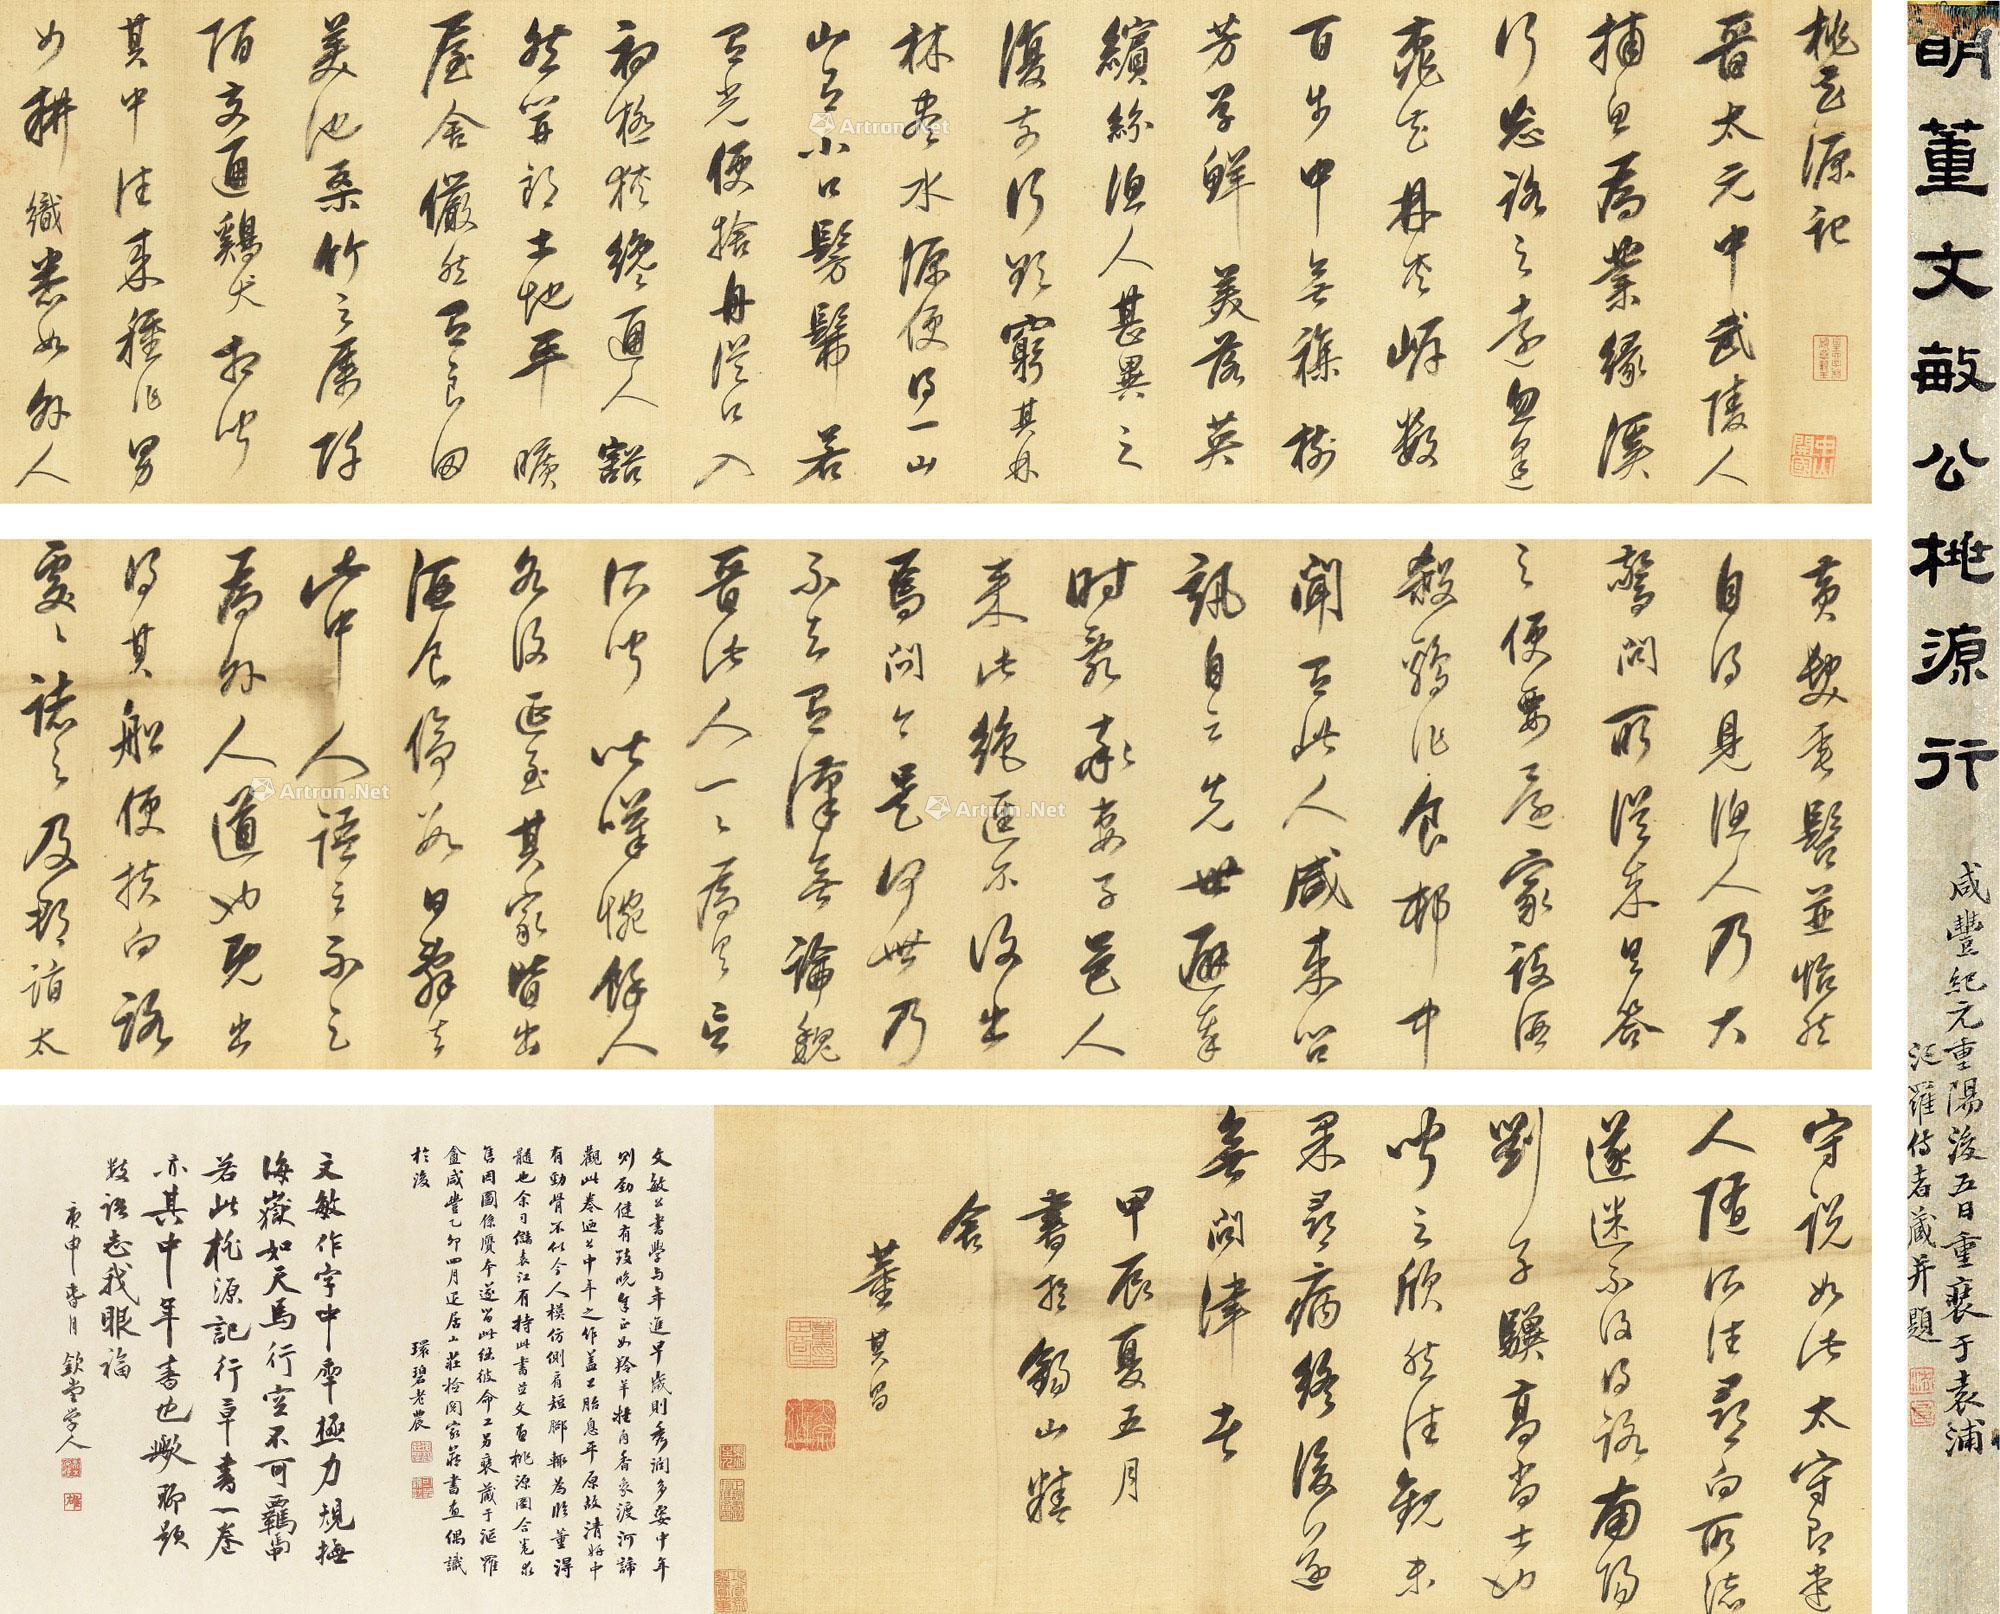 明董文敏公桃源行
咸豐紀元重陽後五日重裝于袁浦
汜羅侍者藏并題
桃花源記
晉太元中武陵人
捕魚為業緣溪
行忘路之遠忽逢
桃花林夾岸數
百步中無雜樹
芳草鮮美落英
繽紛漁人甚異之
復前行欲窮其林
林盡水源便得一山
山有小口髣髴若
有光便捨舟從口入
初極狹纔通人豁
然開朗土地平曠
屋舍儼然有良田
美池桑竹之屬阡
陌交通雞犬相聞
其中往來種作男
女耕織悉如外人
黃髮垂髫並怡然
自得見漁人乃大
驚問所從來具答
之便要還家設酒
殺雞作食邨中
聞有此人咸來問
訊自云先世避秦
時亂率妻子邑人
來此絕區不復出
焉問今是何世乃
不知有漢無論魏
晉此人一一為具言
所聞皆嘆惋餘人
各復延至其家皆出
酒食停數日辭去
此中人語云不足
為外人道也既出
得其船便扶向路
處處誌之及郡詣太
守說如此太守即遣
人隨所往尋向所誌
遂迷不復得路南陽
劉子驥高尚士也
聞之欣然往觀未
果尋病終後遂
無問津者
甲辰夏五月
書於錫山精
舍
董其昌
文敏公書學與年進早歲則秀潤多姿中年
則勁健有致晚年正如羚羊挂角香象渡河諦
觀此卷迺公中年之作蓋工胎息平原故清好中
有勁骨不似今人模仿側肩短腳輒為臨董得
髓也余司儲袁江有持此書並文直桃源圖合卷求
售因圖係贗本遂留此继彼命工另裝藏于汜羅
盦咸豐乙卯四月還居山莊檢閱家藏書直偶識
於後
環碧老農
文敏作字中率極力規撫
海嶽如天馬行空不可羈勒
若此桃源記行草書一卷
亦其中年書也歟聊題
數語志我眼福
庚申春月欽堂學人
Artron.Net
Artron.Net
Artron.Net